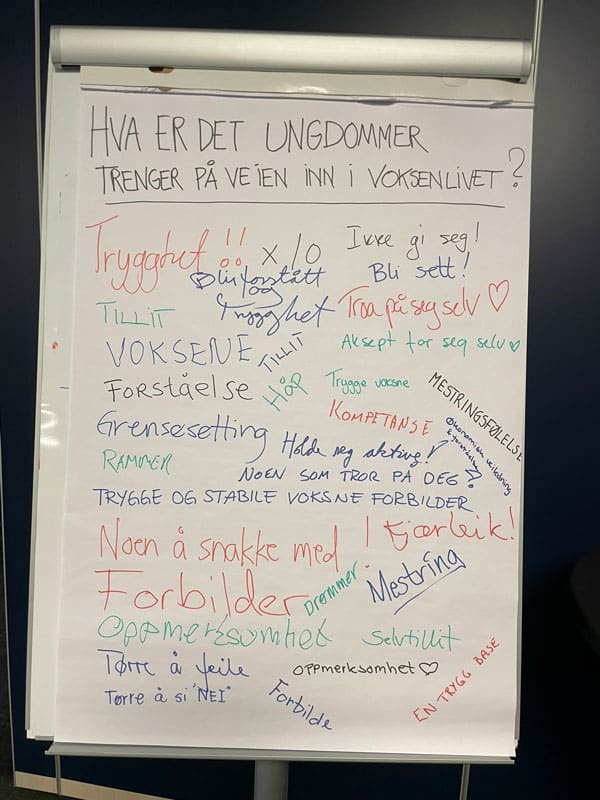 HVA ER DET UNGDOMMER
TRENGER PÅ VEIEN INN I VOKSENLIVET?
Trygghet!! x 10
Ikke gi seg!
Bli forstått
og
Trygghet
Bli sett!
TILLIT
Troa på seg selv ♡
VOKSENE
TILLIT
Aksept for seg selv ♡
FORSTÅELSE
HÅP
Trygge voksne
MESTRINGSFØLELSE
KOMPETANSE
Grensesetting
Holde seg aktive!
Økonomisk veiledning
RAMMER
NOEN SOM TROR PÅ DEG?
TRYGGE OG STABILE VOKSNE FORBILDER
Noen å snakke med!
Kjærleik!
Forbilder
Drømmer
Mestring
Oppmerksomhet
Selvtillit
Tørre å feile
OPPMERKSOMHET ♡
EN TRYGG BASE
Tørre å si "NEI"
Forbilde